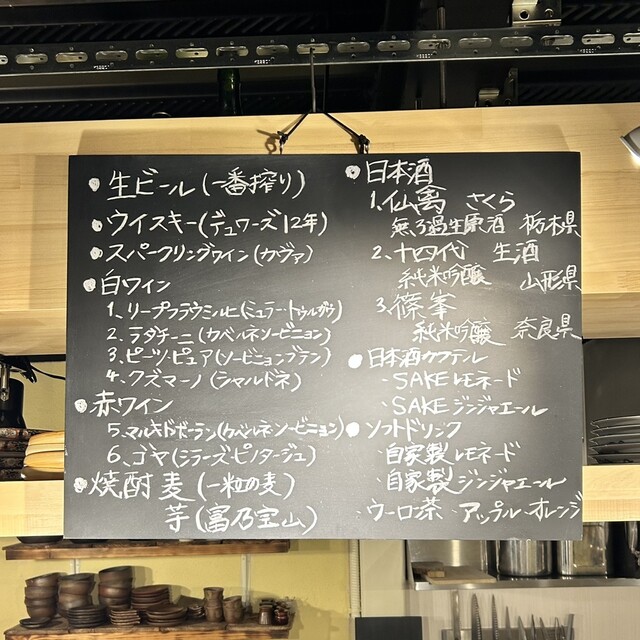 ●生ビール(一番搾り)
●ウイスキー(デュワーズ12年)
●スパークリングワイン(カヴァ)
●白ワイン
1、リープフラウミルヒ(ミュラー・トゥルガウ)
2、ラダチーニ(カベルネソービニョン)
3、ピーツ・ピュア(ソービニョンブラン)
4、クズマーノ(シャルドネ)
●赤ワイン
5、マルキドボーラン(カベルネソービニョン)
6、ゴヤ(シラーズ・ピノタージュ)
●焼酎 麦(一粒の麦)
芋(冨乃宝山)
●日本酒
1、仙禽 さくら
無ろ過生原酒 栃木県
2、十四代 生酒
純米吟醸 山形県
3、篠峯
純米吟醸 奈良県
●日本酒カクテル
・SAKEレモネード
・SAKEジンジャエール
●ソフトドリンク
・自家製レモネード
・自家製ジンジャエール
・ウーロン茶 ・アップル・オレンジ